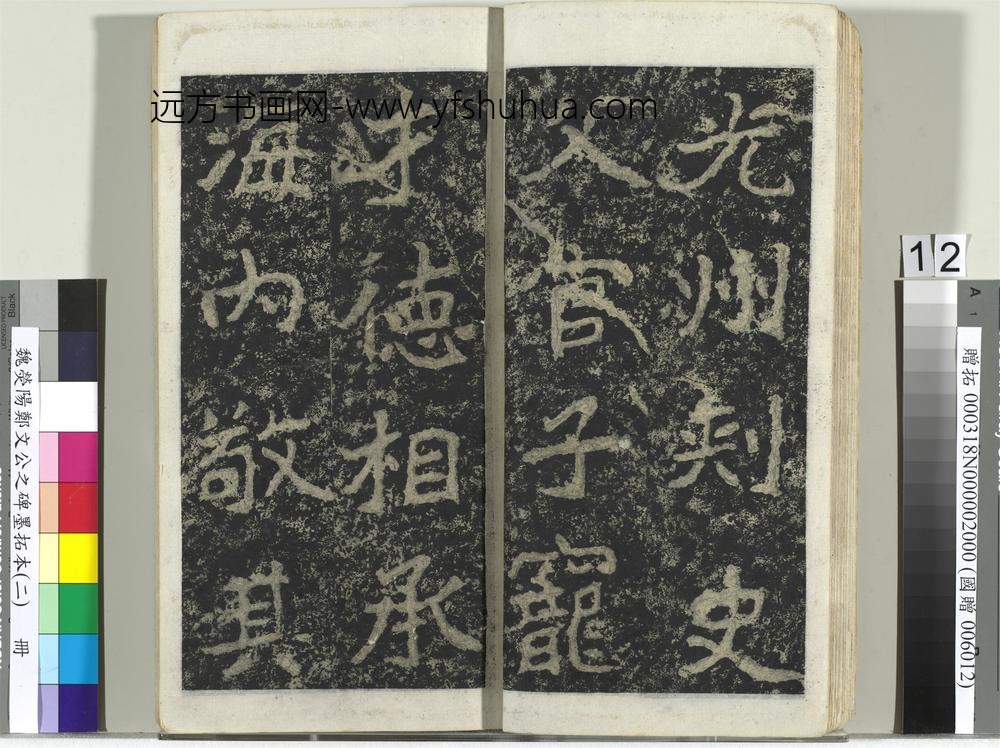 光州刾史
入官子寵
才德相承
海内敬其
远方书画网-www.yfshuhua.com
12
魏滎陽鄭文公之碑墨拓本(二) 冊
贈拓 000318N000002000 (國贈 006012)
Black
A
1